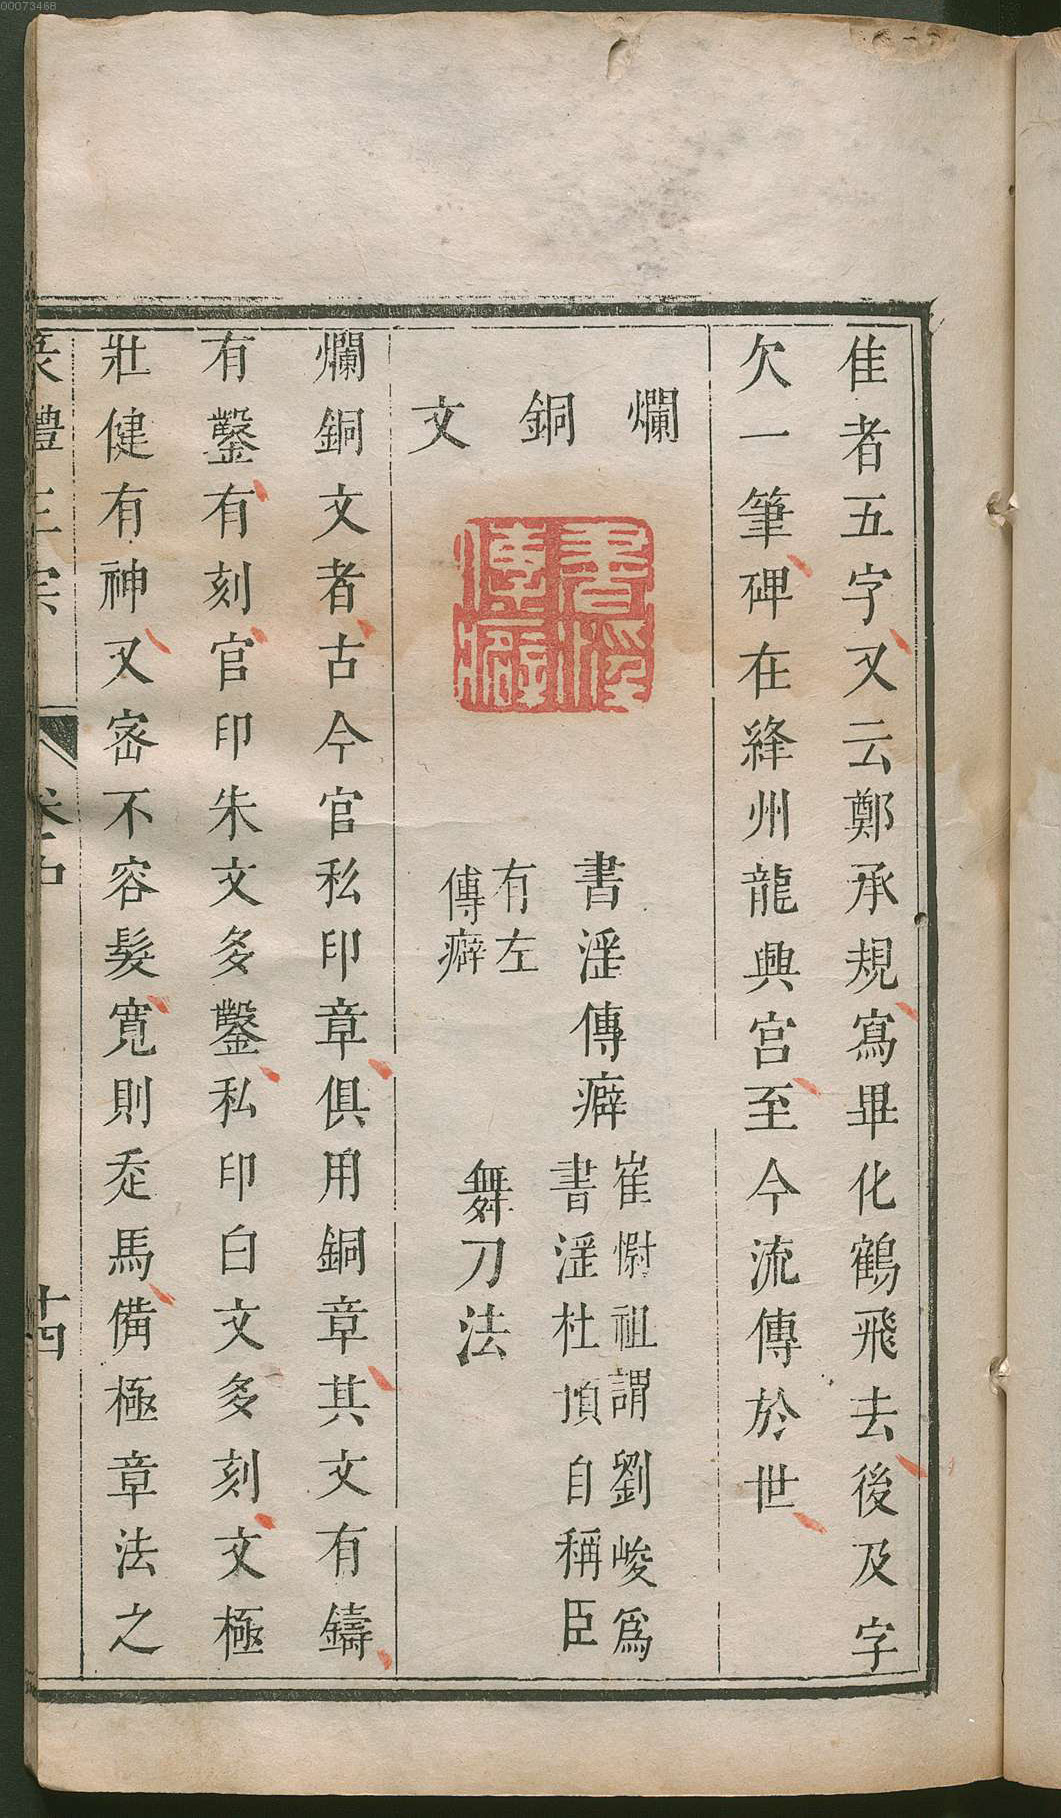 00073468
隹者五字又云鄭承規寫畢化鶴飛去後及字
欠一筆碑在絳州龍興宫至今流傳於世
爛銅文
書淫傳癖
書淫傳癖
崔慰祖謂劉峻爲
書淫杜預自稱臣
有左
傳癖
舞刀法
爛銅文者古今官私印章俱用銅章其文有鑄
有鑿有刻官印朱文多鑿私印白文多刻文極
壯健有神又密不容髮寛則走馬備極章法之
篆體正宗
卷中
十四